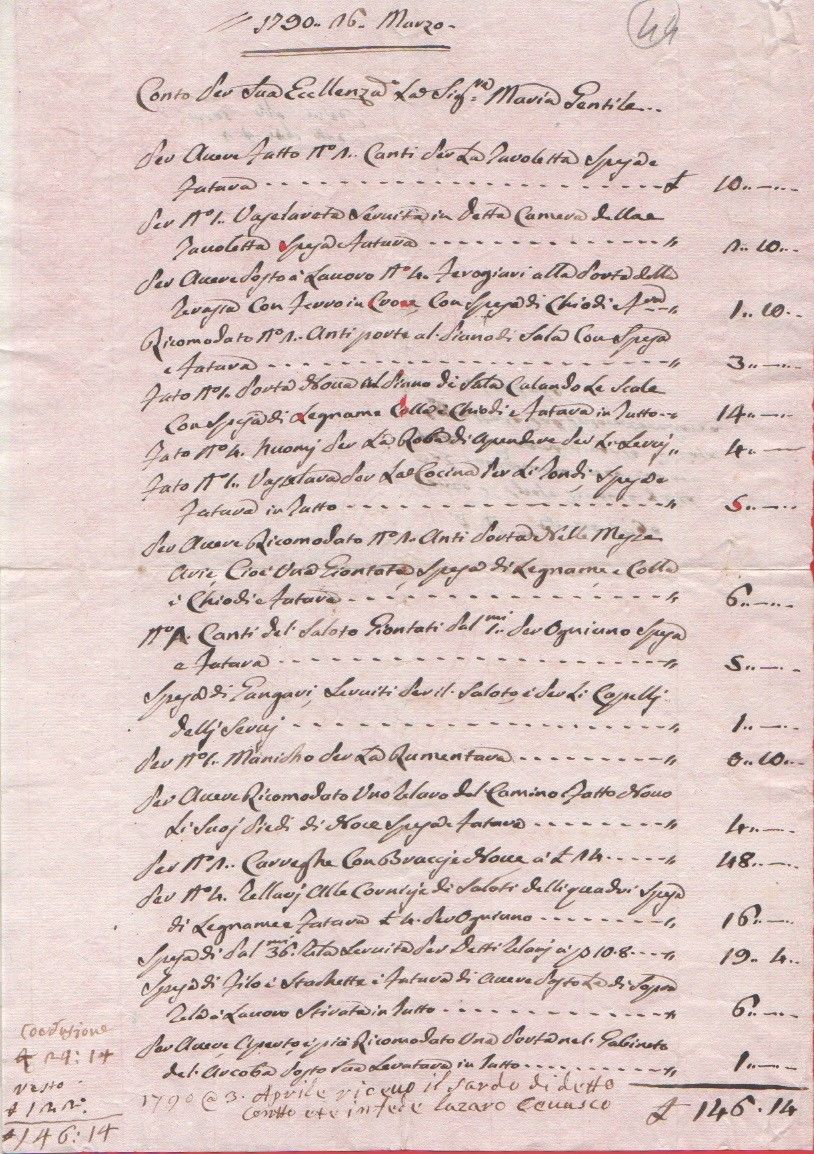 1790.. 16. Marzo.
44
Conto Per Sua Eccellenza La Sig.ra Maria Gentile..
Per Avere Fatto N° 1.. Canti Per La Tavoletta Speza e
Fatura £ 10..
Per N° 1.. Servita in Detta Camera della
Tavoletta Speza e Fatura " 1.. 10..
Per Avere Posto à Lavoro N° 4. Ferogiari alla Porta della
Terassa Con Ferro in Croce, Con Speza di Chiodi e " 1.. 10..
Ricomodato N° 1.. Antiporte al Piano di Sala Con Speza
e Fatura " 3..
Fato N° 1. Porta Nova al Piano di Sala Calando Le Scale
Con Speza di Legname Colla e Chiodi e Fatura in Tutto " 14..
Fato N° 4. Per La Roba di Apendere Per Li " 4..
Fato N° 1. Per La Cocina Per Li Tondi Speza e
Fatura in Tutto " 5..
Per Avere Ricomodato N° 1. Anti Porta Nelle Meze
Arie, Cioè Una Giontata, Speza di Legname e Colla
è Chiodi e Fatura " 6..
Canti del Saloto Giontati Per Ogniuno Speza
e Fatura " 5..
Speza di Gangari, Serviti Per il Saloto, è Per Li Capellj
dellj Servj " 1..
Per N° 1. Manicho Per La Rumentara " 0.. 10..
Per Avere Ricomodato Uno Telaro del Camino Fatto Novo
Li Suoj Piedi di Noce Speza e Fatura " 4..
Per Carreghe Con Braccij e Nove à £ " 48..
Per N° 4. Tellarj Alle Cornije di Saloti delli quadri Speza
di Legname e Fatura £ 4. Per Ogniuno " 16..
Speza di Pal.mi 36. Tela Servita Per Detti Telarj à 10.8 " 19.. 4..
Speza di Filo è Stachette è Fatura di Avere Posto La di Sopra
Tela è Lavoro Stirata in Tutto " 6..
Per Avere Aperto, è più Ricomodato Una Porta nel Gabineto
del Arcoba Posto Sua Levatura in Tutto " 1..
£ 146. 14
1790 @ 3. Aprile il Sardo di detto
Contto e in fede Lazaro Cevasco
24:14
resto
£ 146:14